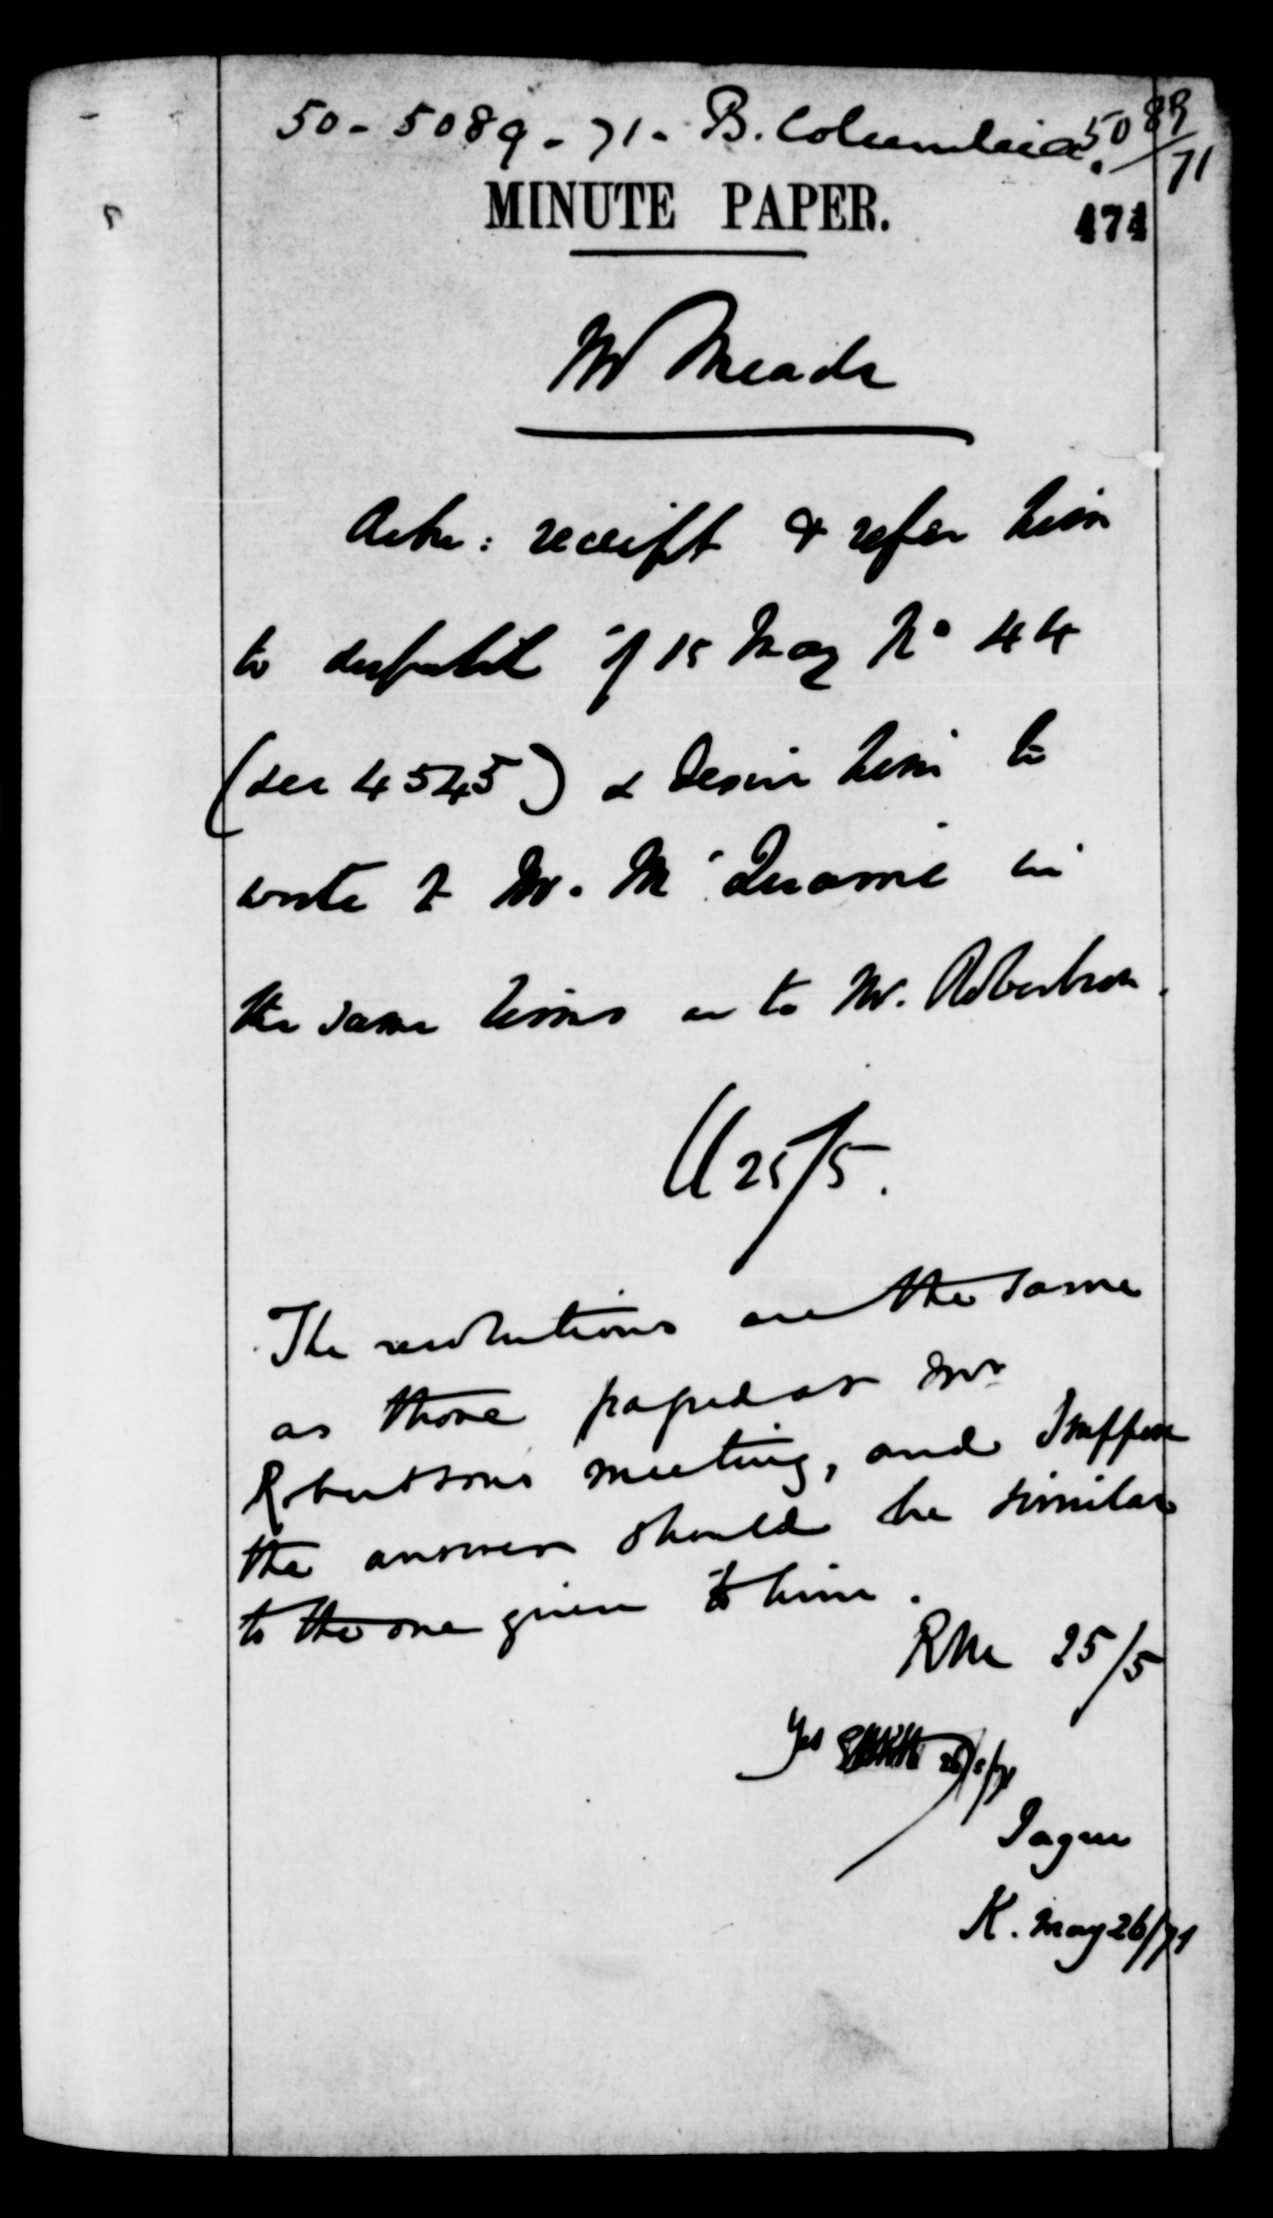 50 - 5089 - 71 - B. Columbia. 5089/71
MINUTE PAPER.
474
Mr Meade
Ackn: receipt & refer him
to despatch of 15 May No 44
(see 4545) & desire him to
write to Mr. M in
the same terms as to Mr. Robertson.
25/5.
The resolutions are the same
as those passed at Mr
Robertsons meeting, and I suppose
the answer should be similar
to the one given to him.
RM 25/5
Yes
I agree
K. May 26/71